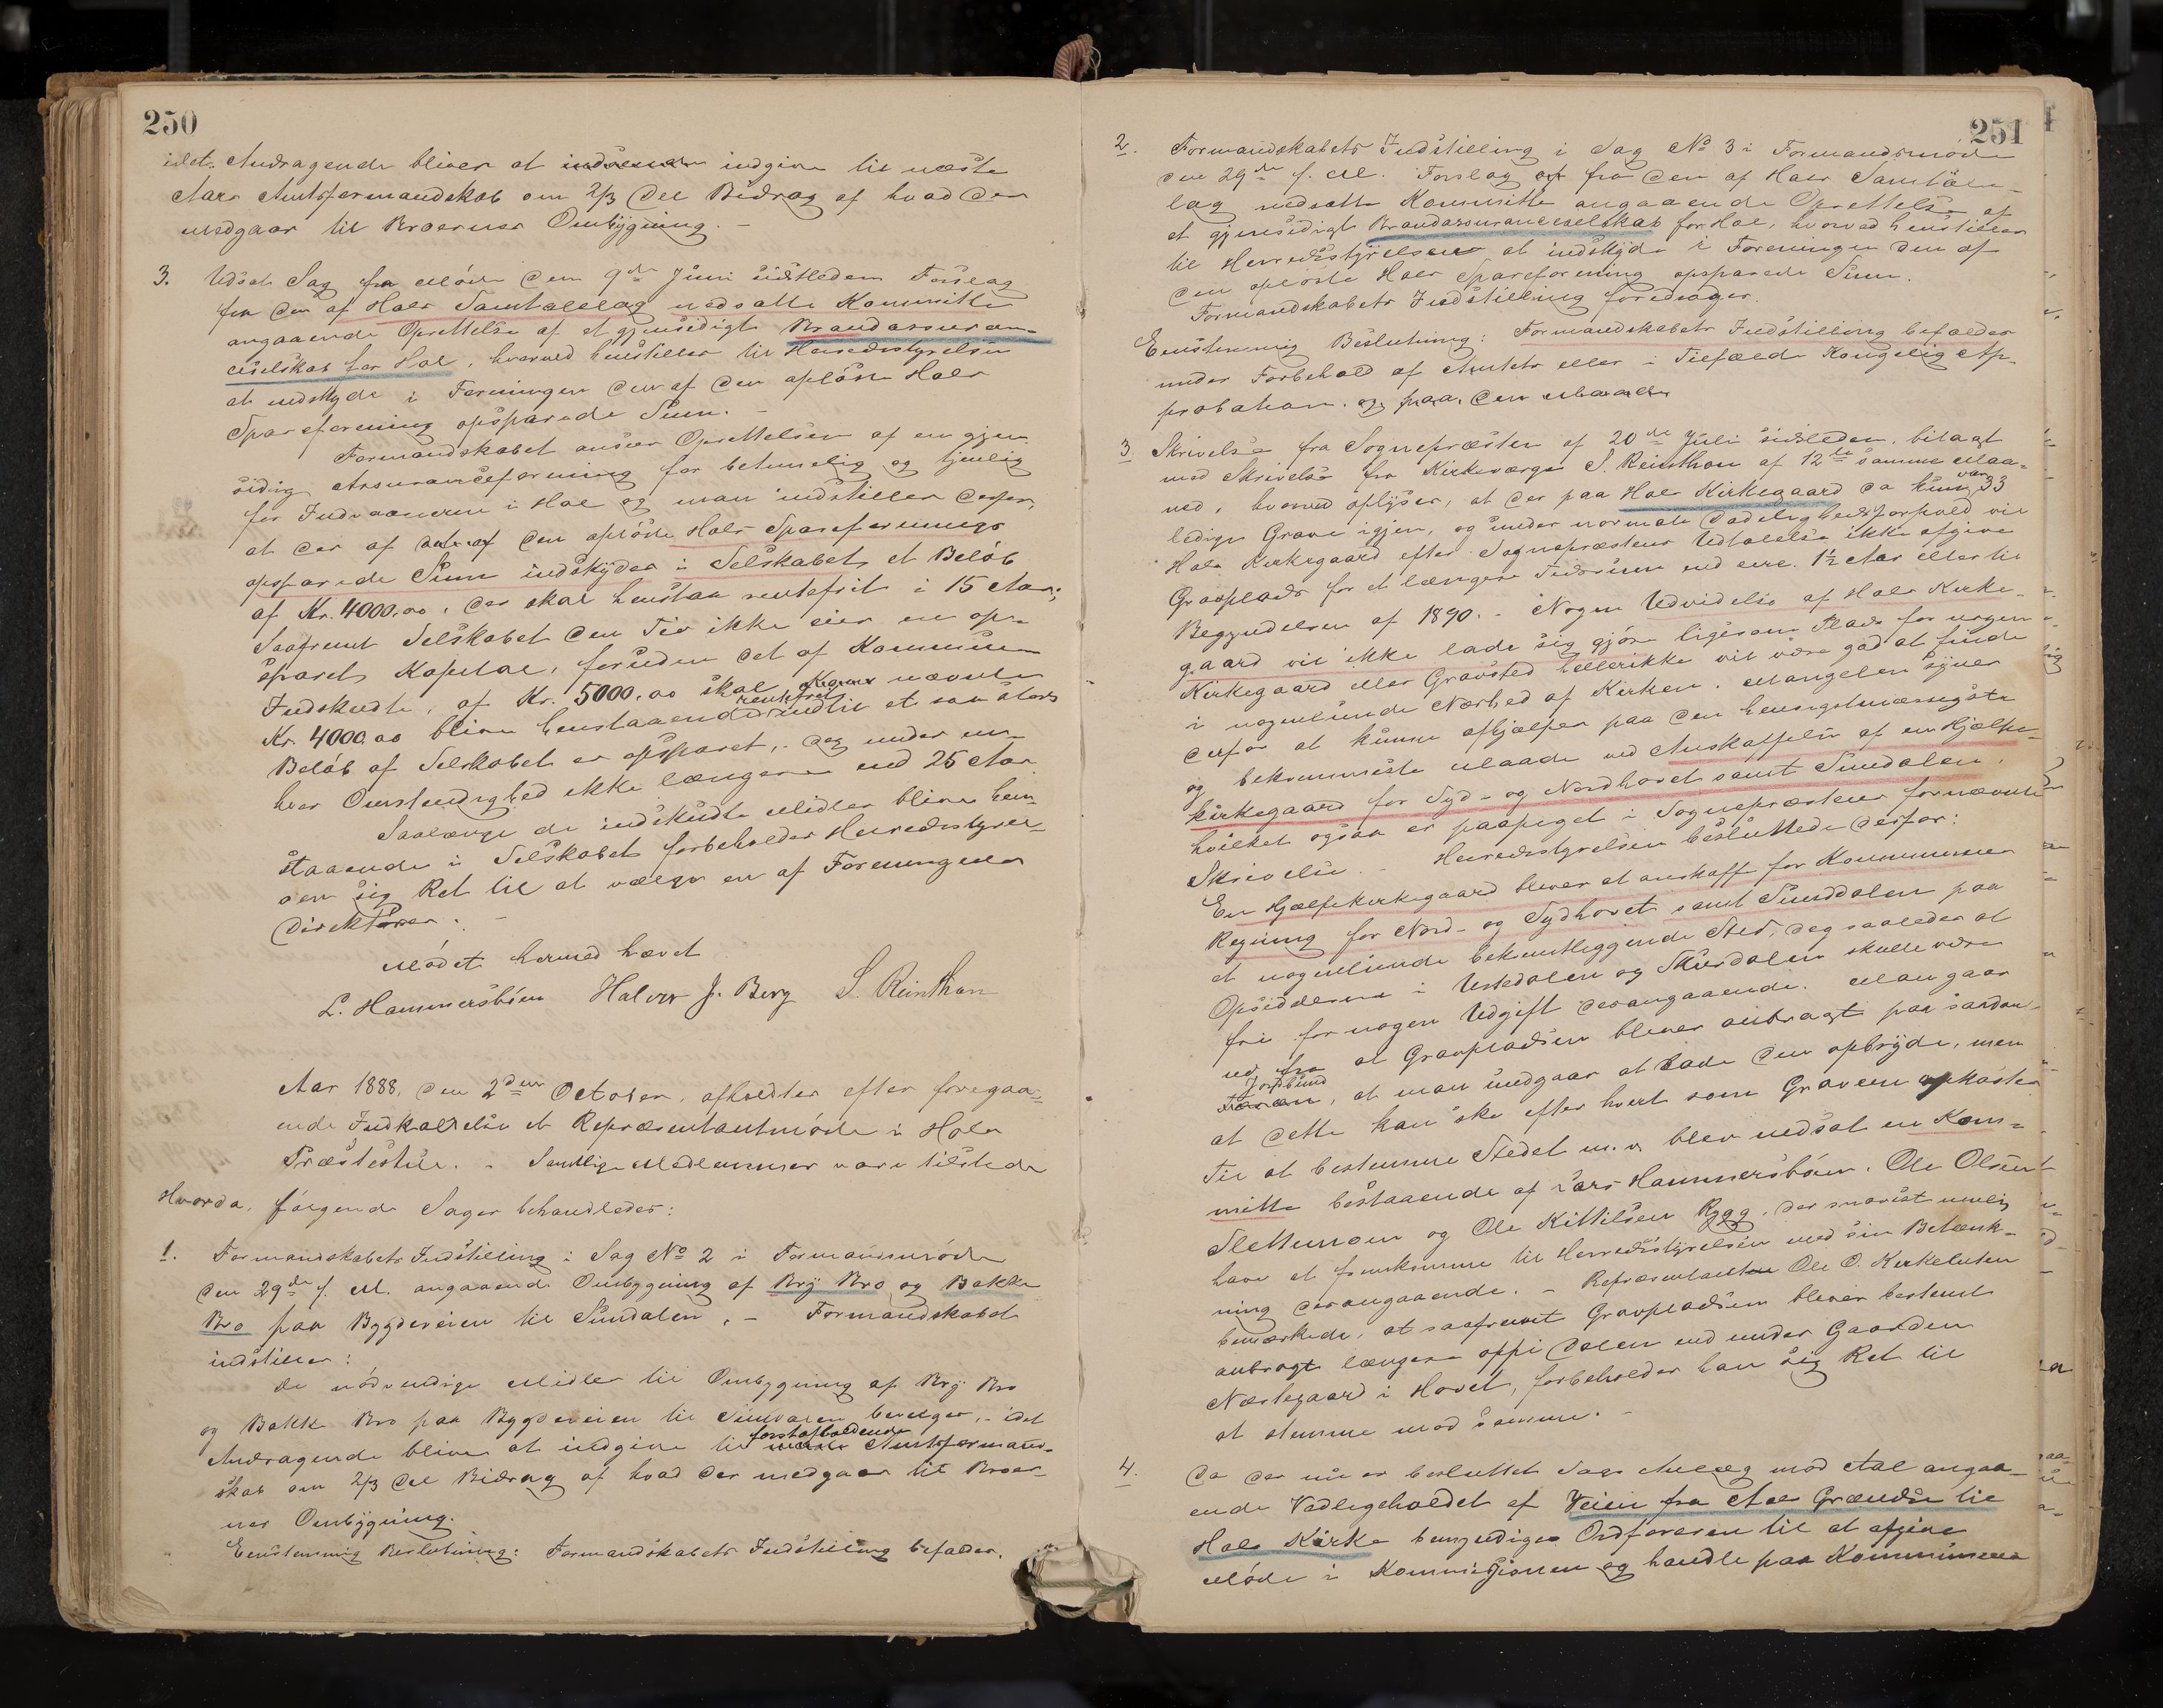 250
idet Andragende bliver at indgive til næste
Aars Amtsformandskab om 2/3 Del Bidrag af hvad der
medgaar til Broernes Ombygning. -
3. Udsat Sag fra Møde den 9de Juni sidstleden Forslag
fra den af Hols Samtalelag nedsatte Kommitte
angaaende Oprettelse af et gjensidigt Brandassuran-
ceselskab for Hol, hvorved henstilles til Herredsstyrelsen
at indskyde i Foreningen den af den opløste Hols
Spareforening opsparede Sum. -
Formandskabet anser Oprettelsen af en gjen
sidig Assuranceforening for betimelig og tjenlig
for Indvaanerne i Hol og man indstiller derfor,
at der af den opløste Hols Spareforenings
opsparede Sum indskydes i Selskabet et Beløb
af Kr. 4000,00, der skal henstaa rentefrit i 15 Aar;
Saafremt Selskabet den Tid ikke eier en op-
sparet Kapital, foruden det af Kommunen
Indskudte, af Kr. 5000,00 skal nævnte
Kr. 4000.00 blive henstaaende rentefrit indtil et saa stort
Beløb af Selskabet er opsparet, - dog under en-
hver Omstendighed ikke længere end 25 Aar.
Saalænge de indskudte Midler blive hen-
staaende i Selskabet forbeholder Herredsstyrel-
sen sig Ret til at vælge en af Foreningens
Direktører. -
Mødet hermed hævet
L. Hammersbøen Halvor J. Berg S. Reinthon
Aar 1888, den 2den October, afholdtes efter foregaa=
ende Indkaldelse et Repræsentantmøde i Hols
Præstestue. - Samtlige Medlemmer vare tilstede
Hvorda, følgende Sager behandledes:
1. Formandskabets Indstilling i Sag No 2 i Formandsmøde
den 29de f. M. angaaende Ombygning af Bry Bro og Bakke
Bro paa Bygdeveien til Sundalen. - Formandskabet
indstiller:
De nødvendige Midler til Ombygning af Bry Bro
og Bakke Bro paa Bygdeveien til Sundalen bevilges, - idet
Andragende bliver at indgive til førstafholdende Amtsformand-
skab om 2/3 Del Bidrag af hvad der medgaar til Broer-
nes Ombygning.
Eenstemmig Beslutning: Formandskabets Indstilling bifaldes.
251
2. Formandskabets Indstilling i Sag No 3 i Formandsmøde
den 29de f. M. Forslag fra den af Hols Samtale-
lag nedsatte Kommitte angaaende Oprettelse af
et gjensidigt Brandassuranceselskab for Hol, hvorved henstilles
til Herredsstyrelsen at indskyde i Foreningen den af
den opløste Hols Spareforening opsparede Sum.
Formandskabets Indstilling foredrages.
Eenstemmig Beslutning: Formandskabets Indstilling bifaldes
under Forbehold af Amtets eller i Tilfælde Kongelig Ap-
probation.
3. Skrivelse fra Sognepræsten af 20de Juli sidstleden, bilagt
med Skrivelse fra Kirkeværge S. Reinthon af 12te samme Maa-
ned, hvorved oplyses, at der paa Hols Kirkegaard da kun var 33
ledige Grave igjen, og under normale Dødelighedsforhold vil
Hols Kirkegaard efter Sognepræstens Udtalelse ikke afgive
Gravplads for et længere Tidsrum end circ. 1½ Aar eller til
Begyndelsen af 1890. - Nogen Udvidelse af Hols Kirke-
gaard vil ikke lade sig gjøre ligesom Plads for nogen
Kirkegaard eller Gravsted hellerikke vil være god at finde
i nogenlunde Nærhed af Kirken. Mangelen synes
derfor at kunne afhjælpes paa den hensigtsmæssigste
og bekvemmeste Maade ved Anskaffelse af en Hjælpe-
kirkegaard for Syd- og Nordhovet samt Sundalen,
hvilket ogsaa er paapeget i Sognepræstens fornævnte
Skrivelse. - Herredsstyrelsen besluttede derfor:
En Hjælpekirkegaard bliver at anskaffe for Kommunens
Regning for Nord- og Sydhovet samt Sunddalen paa
et nogenlunde bekvemtliggende Sted, dog saaledes at
Opsidderne i Ustedalen og Skurdalen skulle være
fri for nogen Udgift desangaaende. Man gaar
ud fra at Gravpladsen bliver anbragt paa saadan
Jordbund, at man undgaar at lade den opbryde, men
at dette kan ske efter hvert som Graven opkastes
Til at bestemme Stedet m. v. blev nedsat en Kom-
mitte bestaaende af Lars Hammersbøen, Ole Olsen
Slettemoen og Ole Kittilsen Rygg, der snarest mulig
have at fremkomme til Herredsstyrelsen med sin Betænk-
ning desangaaende. - Repræsentanten Ole O. Kirkeluten
bemærkede, at saafremt Gravpladsen bliver bestemt
anbragt længere oppi Dalen end under Gaarden
Næstegaard i Hovet, forbeholder han sig Ret til
at stemme mod samme. -
4. Da der nu er besluttet Sags Anlæg mod Aal angaa-
ende Vedligeholdet af Veien fra Aals Grændse til
Hols Kirke bemyndiges Ordføreren til at afgive
Møde i Kommissionen og handle paa Kommunens